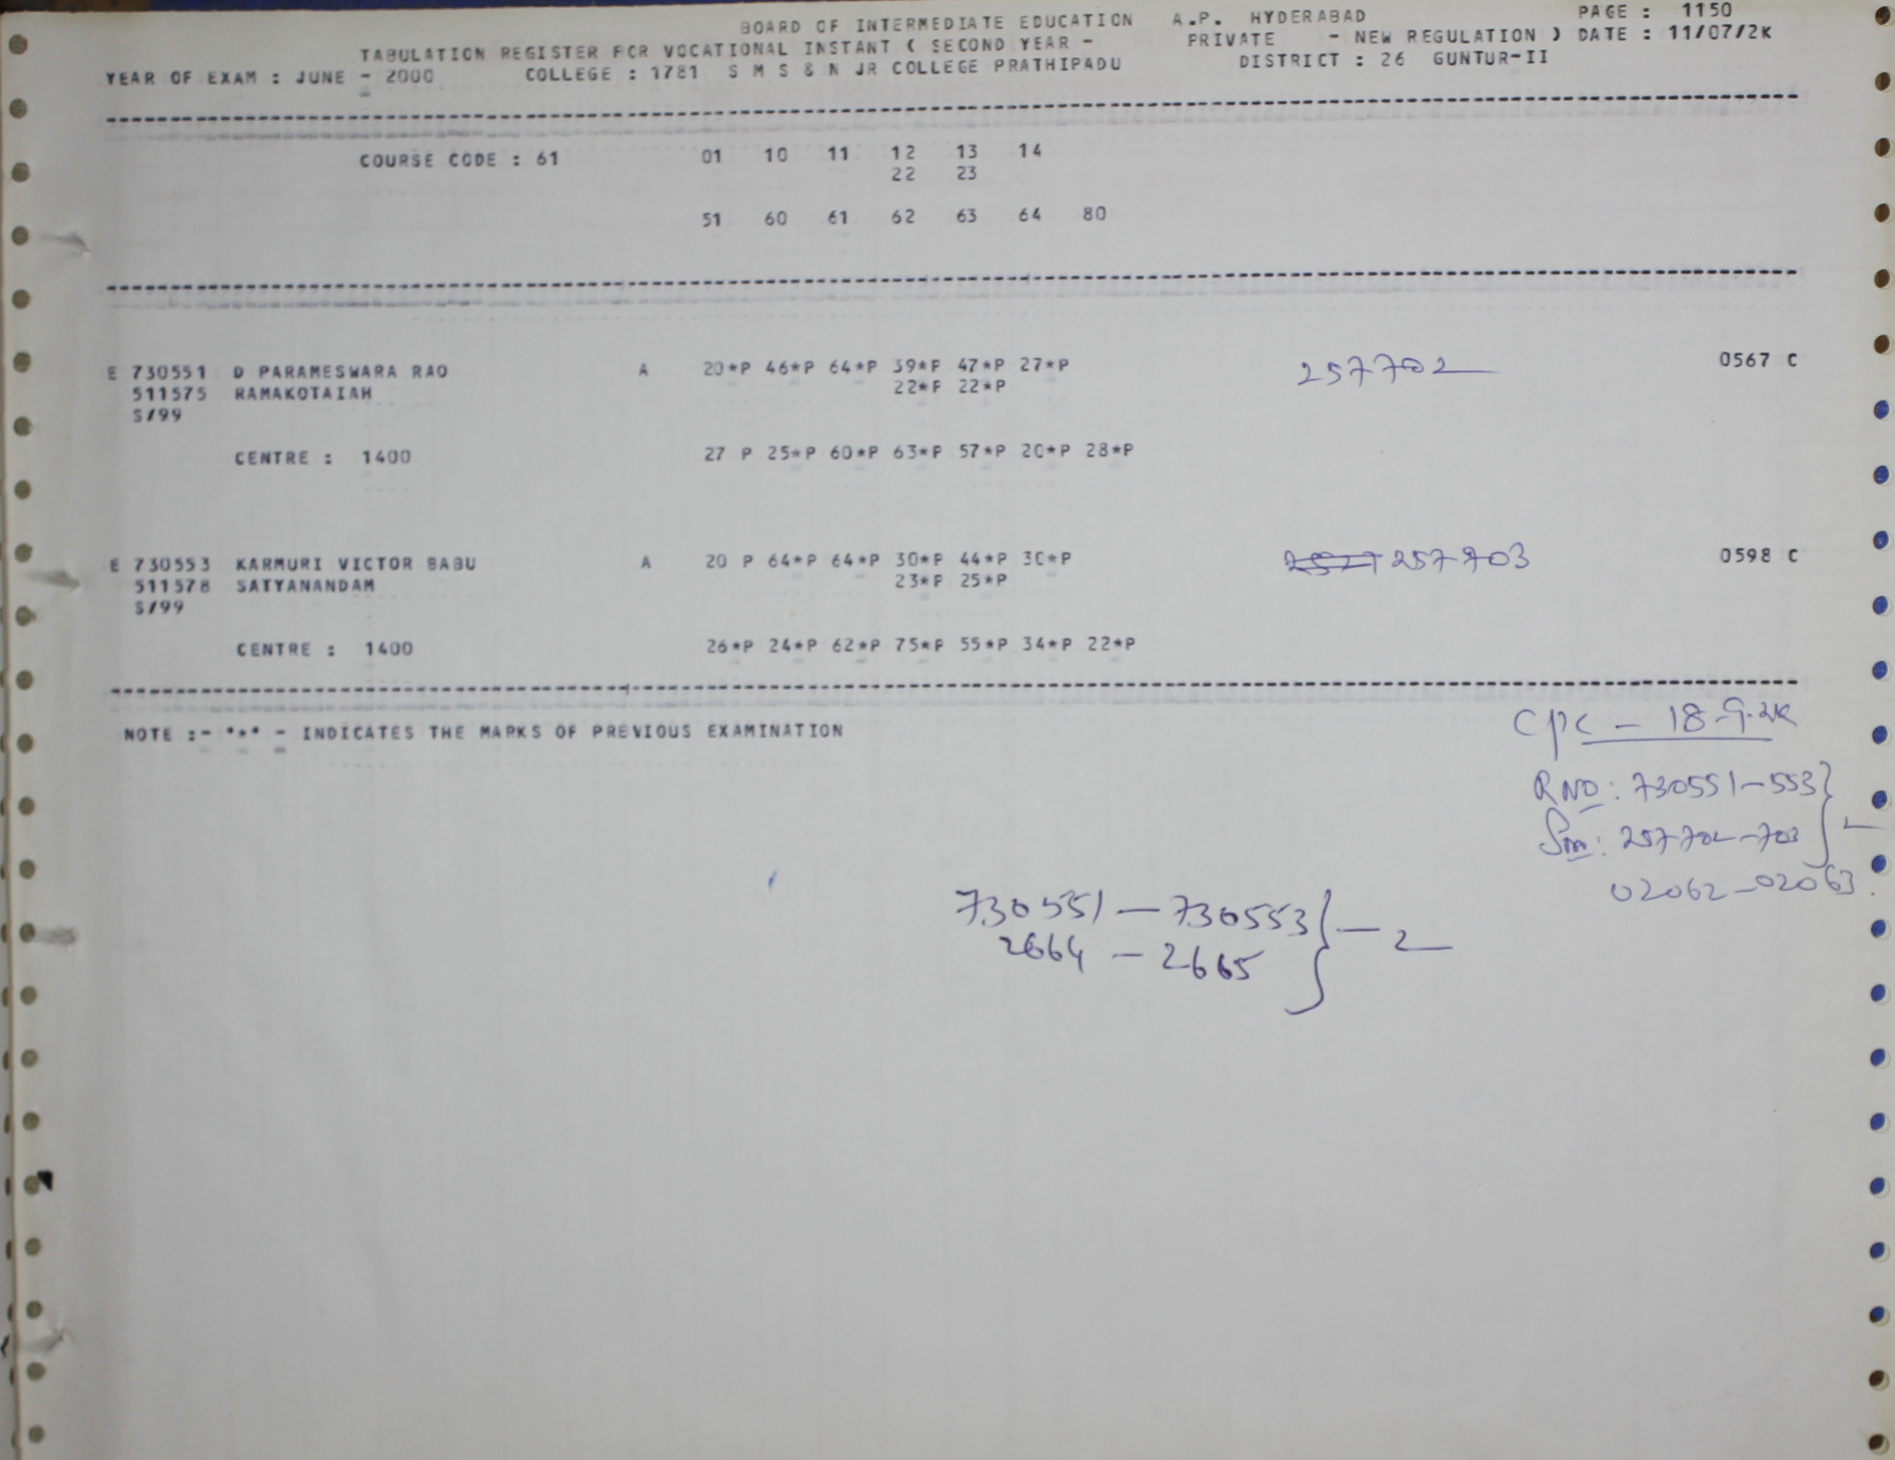 BOARD OF INTERMEDIATE EDUCATION A.P. HYDERABAD PAGE : 1150
TABULATION REGISTER FOR VOCATIONAL INSTANT ( SECOND YEAR - PRIVATE - NEW REGULATION ) DATE : 11/07/2K
YEAR OF EXAM : JUNE - 2000 COLLEGE : 1781 S M S & N JR COLLEGE PRATHIPADU DISTRICT : 26 GUNTUR-II
COURSE CODE : 61 01 10 11 12 13 14
22 23
51 60 61 62 63 64 80
E 730551 D PARAMESWARA RAO A 20*P 46*P 64*P 39*P 47*P 27*P 257702 0567 C
511575 RAMAKOTAIAH 22*P 22*P
S/99
CENTRE : 1400 27 P 25*P 60*P 63*P 57*P 20*P 28*P
E 730553 KARMURI VICTOR BABU A 20 P 64*P 64*P 30*P 44*P 30*P 257703 0598 C
511578 SATYANANDAM 23*P 25*P
S/99
CENTRE : 1400 26*P 24*P 62*P 75*P 55*P 34*P 22*P
NOTE :- "*" - INDICATES THE MARKS OF PREVIOUS EXAMINATION
CPC - 18-9-2K
RNO: 730551-553
Sm: 257702-703
02062-02063.
730551 - 730553 } - 2
2664 - 2665